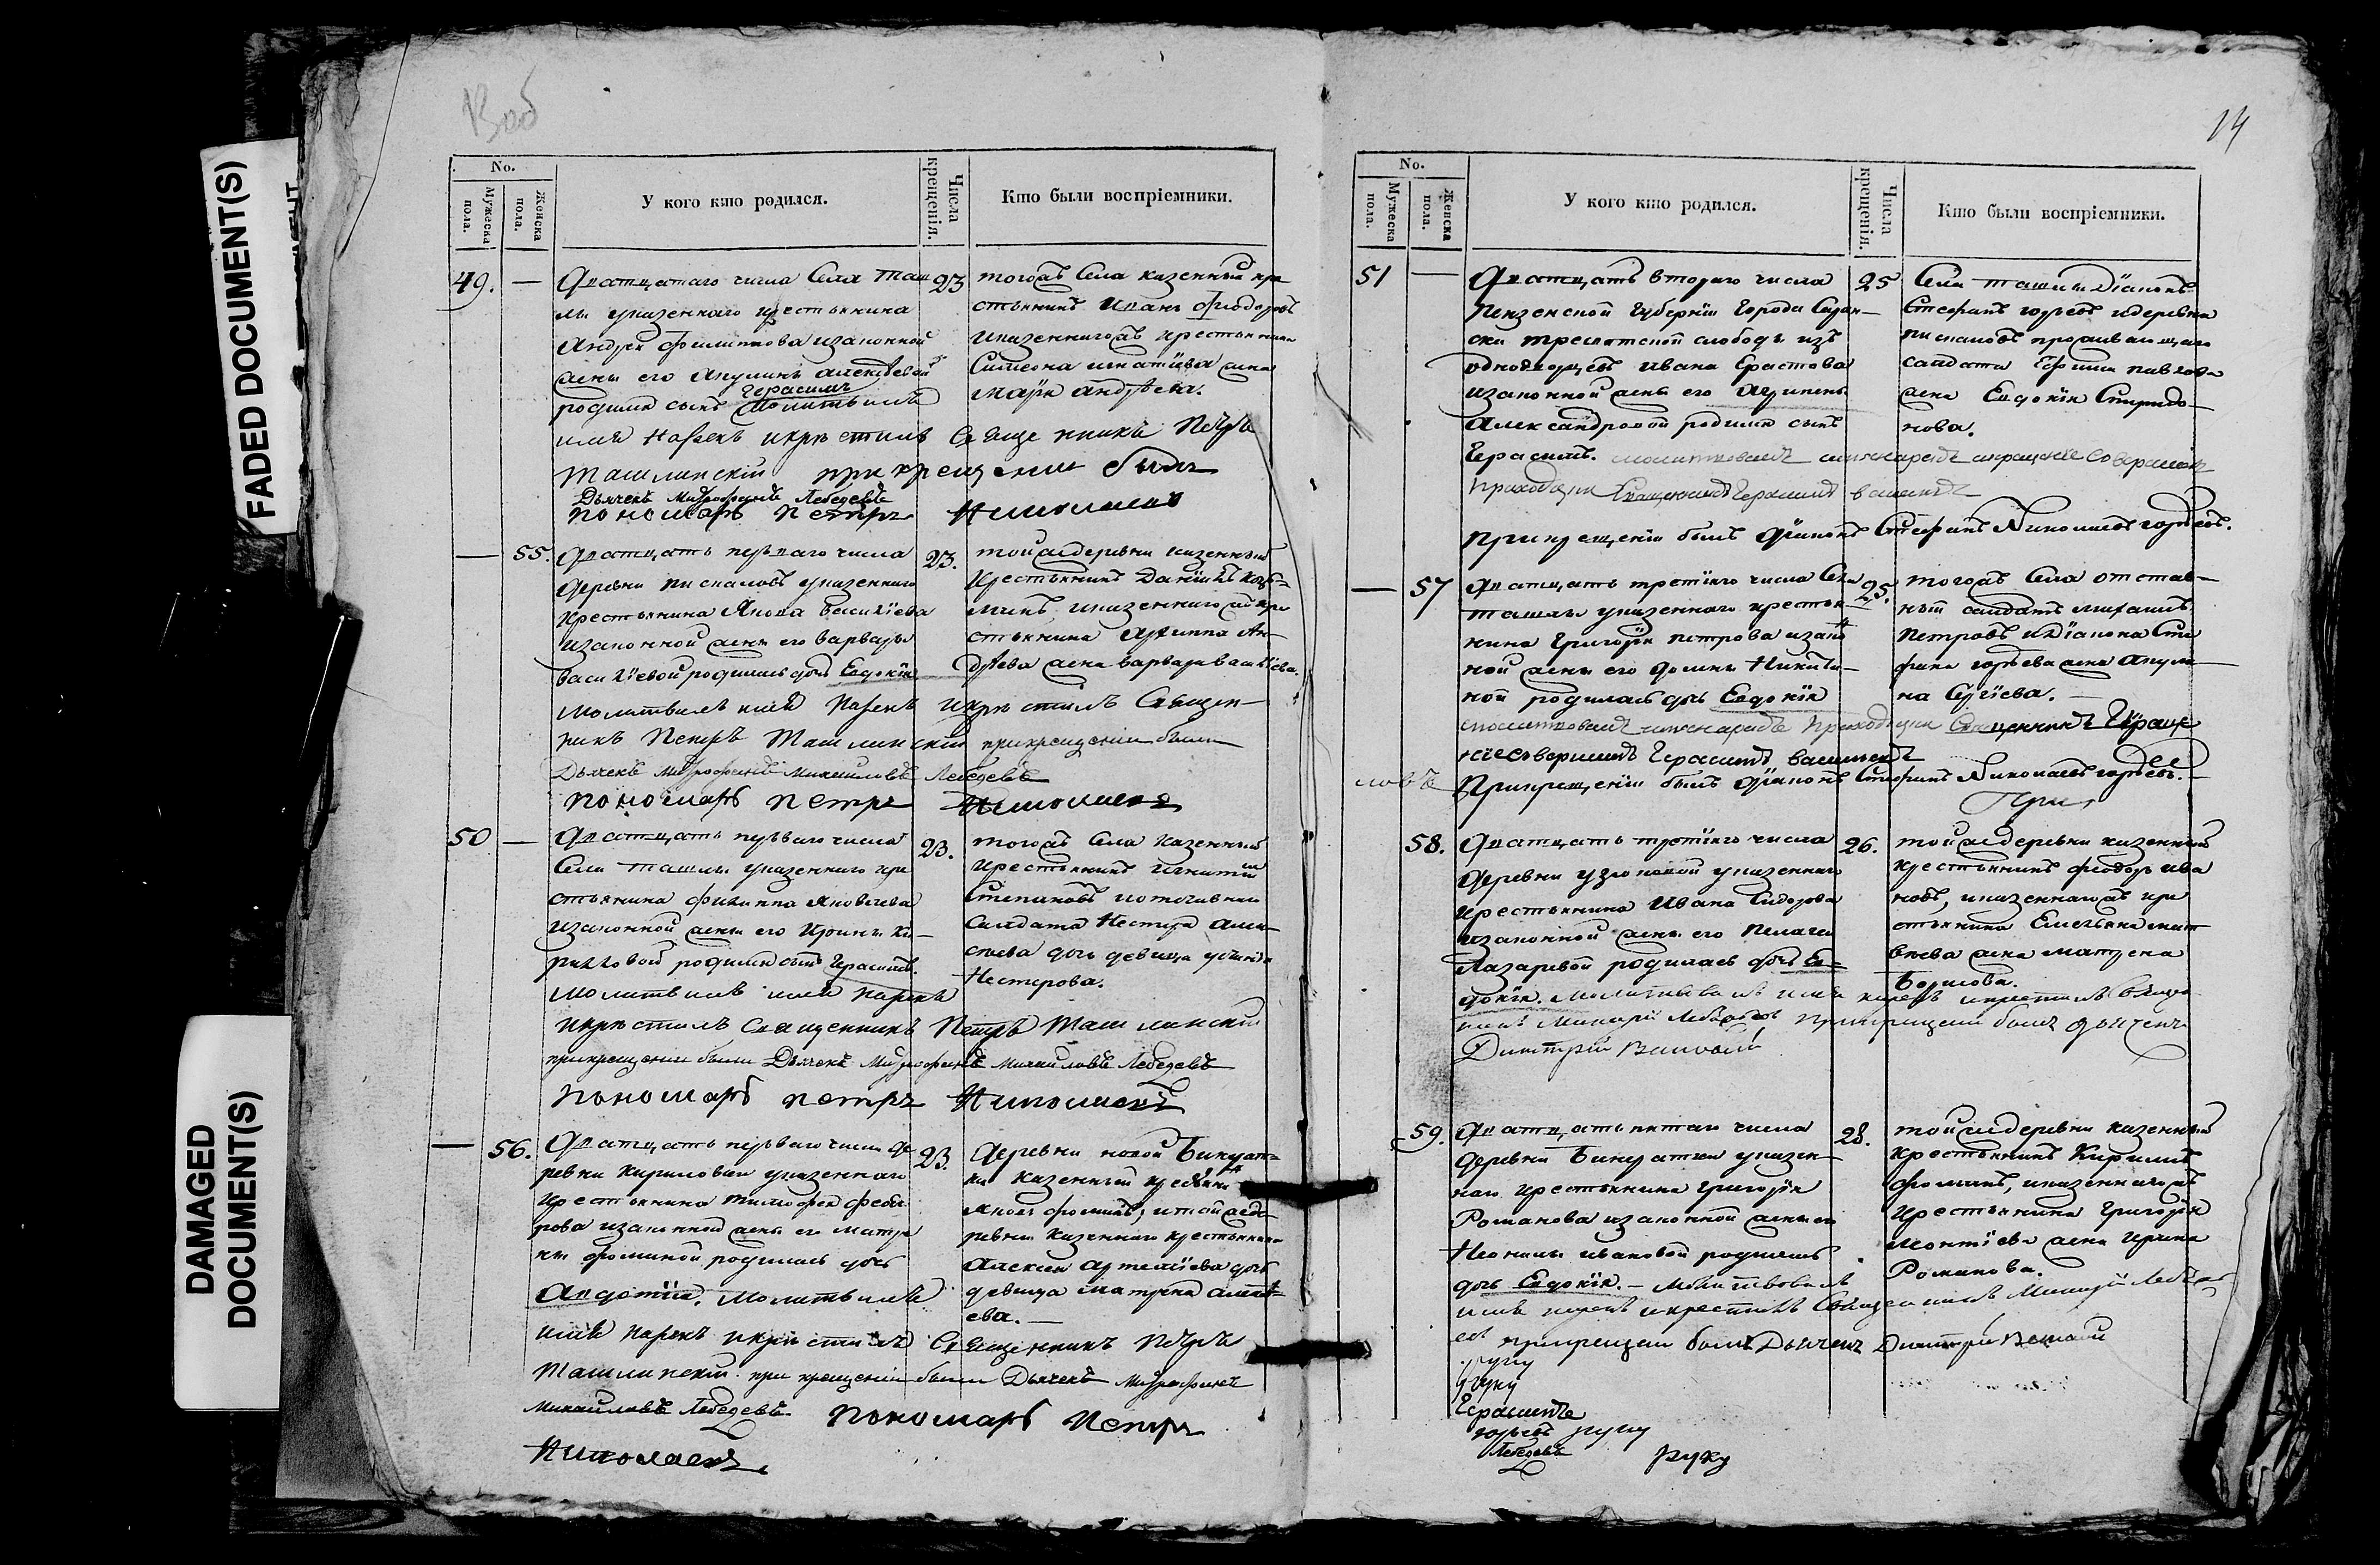 FADED DOCUMENT(S)
DAMAGED
DOCUMENT(S)
No.
Мужеска пола.
Женска пола.
У кого кто родился.
Числа крещенія.
Кто были воспріемники.
49. — Дватцатаго числа Села Таш
лы у казеннаго крестьянина
Андрея Филиппова изаконной
жены его Акулины Алексѣевой
Герасимъ
родился сынъ Молитвилъ
имя Нарекъ икрестилъ Священникъ Петръ
Ташлинскій при крещении были
Дьячекъ Митрофанъ Лебедевъ
пономарь Петръ Николаевъ
23 тогожъ Села казенный кре
стьянинъ Иванъ Фиодоровъ
иказеннагожъ крестьянина
Симеона игнатіева жена
Марья андрѣева.
— 55. Дватцать перваго числа
деревни пискаловъ у казеннаго
крестьянина Якова Василіева
изаконной жены его Варвары
Василіевой родилась дочь Евдокія
Молитвилъ имя Нарекъ икрестилъ Священ-
никъ Петръ Ташлинскій прикрещении были
Дьячекъ Митрофанъ Михаиловъ Лебедевъ
пономарь Петръ Николаевъ
23. тойжъ деревни казенный
крестьянинъ Даніилъ
стьянина Ан-
дрѣева жена варвара василіева.
50 — Дватцать перваго числа
Села Ташлы у казеннаго кре
стьянина Филиппа Яковлева
изаконной жены его Ирины Ки-
риловой родился сынъ Герасимъ.
Молитвилъ имя Нарекъ
икрестилъ Священникъ Петръ Ташлинскій
прикрещении были Дьячекъ Митрофанъ Михаиловъ Лебедевъ
пономарь Петръ Николаевъ
23. тогожъ Села Казенный
крестьянинъ Игнатій
Степановъ
Салдата Нестера
дочь девица
Нестерова.
— 56. Дватцать перваго числа де
ревни Кириловки у казеннаго
крестьянина Тимофея Феодо
рова изаконной жены его Матре
ны Фоминой родилась дочь
Авдотія. Молитвилъ
имя Нарекъ икрестилъ Священникъ Петръ
Ташлинскій при крещении были Дьячекъ Митрофанъ
Михаиловъ Лебедевъ пономарь Петръ
Николаевъ
23. Деревни новой Бинарат-
ки казенный крестьянинъ
Яковъ Фоминъ, итойже де
ревни казеннаго крестьянина
Алексея Артеміева дочь
девица Матрена Алексѣ-
ева.
14
No.
Мужеска пола.
Женска пола.
У кого кто родился.
Числа крещенія.
Кто были воспріемники.
51 — Дватцать втораго числа
Пензенской Губерніи Города Саран-
ска слободы изъ
однодворцевъ Ивана Ерастова
изаконной жены его
Александровой родился сынъ
Герасимъ.
Приходцки Священникъ Герасимъ
Прикрещеніи былъ Діаконъ Стефанъ Николаевъ Горѣевъ.
25 Села Ташлы Діаконъ
Стефанъ Горѣевъ идеревни
пискаловъ проживающаго
салдата Ефима Павлова
жена Евдокія Спиридо-
нова.
— 57 Дватцать третіяго числа Села
Ташлы у казеннаго крестья-
нина Григорія Петрова изако
ной жены его Домны Никити-
ной родилась дочь Евдокія
Приходцки Священникъ
Герасимъ
Прикрещеніи былъ Діаконъ Стефанъ Николаевъ Горѣевъ.
25. тогожъ Села отстав-
ной салдатъ Михаилъ
Петровъ и Діакона Сте
фана Горѣева жена Акули-
на Сергіева.
58. Дватцать третіяго числа
деревни Узюковой у казеннаго
крестьянина Ивана Сидорова
изаконной жены его Пелагеи
Лазаревой родилась дочь Ев-
докія. Молитвовалъ имя нарекъ икрестилъ Священ
никъ Лебедевъ Прикрещеніи былъ дьячекъ
Димитрій
26. тойже деревни казенный
крестьянинъ Феодоръ ива
новъ, иказеннагожъ кре
стьянина Емельяна мат
вѣева жена Матрена
Борисова.
59. Дватцать пятаго числа
деревни Бинаратки у казен-
наго крестьянина Григорія
Романова изаконной жены его
Неонилы ивановой родилась
дочь Евдокія. — Молитвовалъ
имя нарекъ икрестилъ Священникъ
прикрещеніи былъ Дьячекъ Димитрій
28. тойже деревни казенный
крестьянинъ Кирилъ
Фоминъ, иказеннагожъ
крестьянина Григорія
Леонтіева жена Ирина
Романова.
руку
руку
Герасимъ
Горѣевъ руку
Лебедевъ
руку